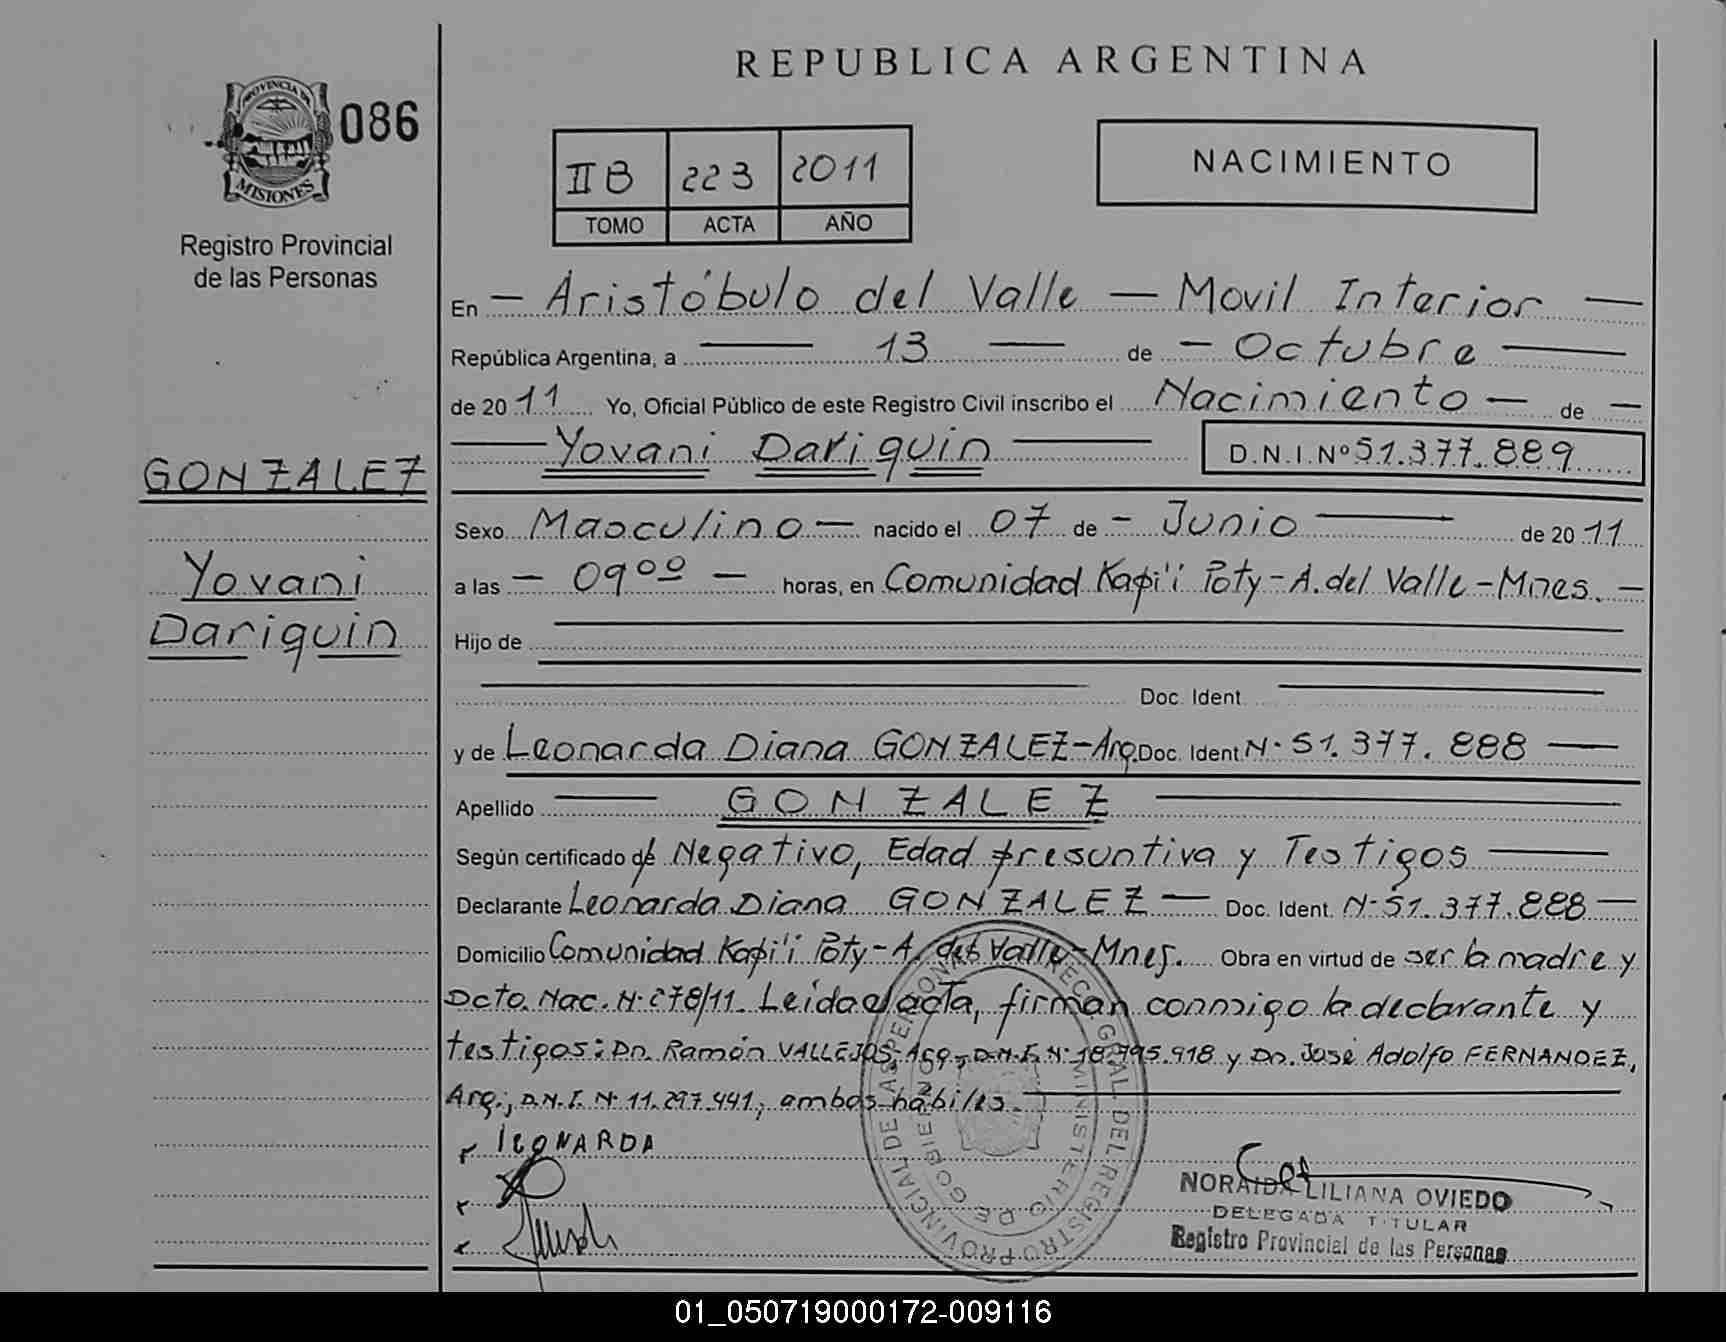 REPUBLICA ARGENTINA
PROVINCIA DE
MISIONES
086
Registro Provincial
de las Personas
GONZALEZ
Yovani
Dariquin
II B 223 2011
TOMO ACTA AÑO
NACIMIENTO
En — Aristóbulo del Valle — Movil Interior —
República Argentina, a — 13 — de — Octubre —
de 2011 Yo, Oficial Público de este Registro Civil inscribo el Nacimiento — de —
— Yovani Dariquin — D.N.I. Nº 51.377.889
Sexo Masculino — nacido el 07 de — Junio — de 2011
a las — 09⁰⁰ — horas, en Comunidad Kapi'i Poty - A. del Valle - Mnes. —
Hijo de
Doc. Ident.
y de Leonarda Diana GONZALEZ - Arg. Doc. Ident. Nº 51.377.888 —
Apellido — GONZALEZ —
Según certificado de Negativo, Edad presuntiva y Testigos —
Declarante Leonarda Diana GONZALEZ — Doc. Ident. Nº 51.377.888 —
Domicilio Comunidad Kapi'i Poty - A. del Valle - Mnes. Obra en virtud de ser la madre y
Dcto. Nac. Nº 278/11. Leída el acta, firman conmigo la declarante y
testigos: Dn. Ramón VALLEJOS, Arg., D.N.I. Nº 18.795.918 y Dn. José Adolfo FERNANDEZ,
Arg., D.N.I. Nº 11.297.441, ambos hábiles. —
LEONARDA
NORAIDA LILIANA OVIEDO
DELEGADA TITULAR
Registro Provincial de las Personas
GRAL. DEL REGISTRO PROVINCIAL DE LAS PERSONAS
MINISTERIO DE GOBIERNO
01_050719000172-009116